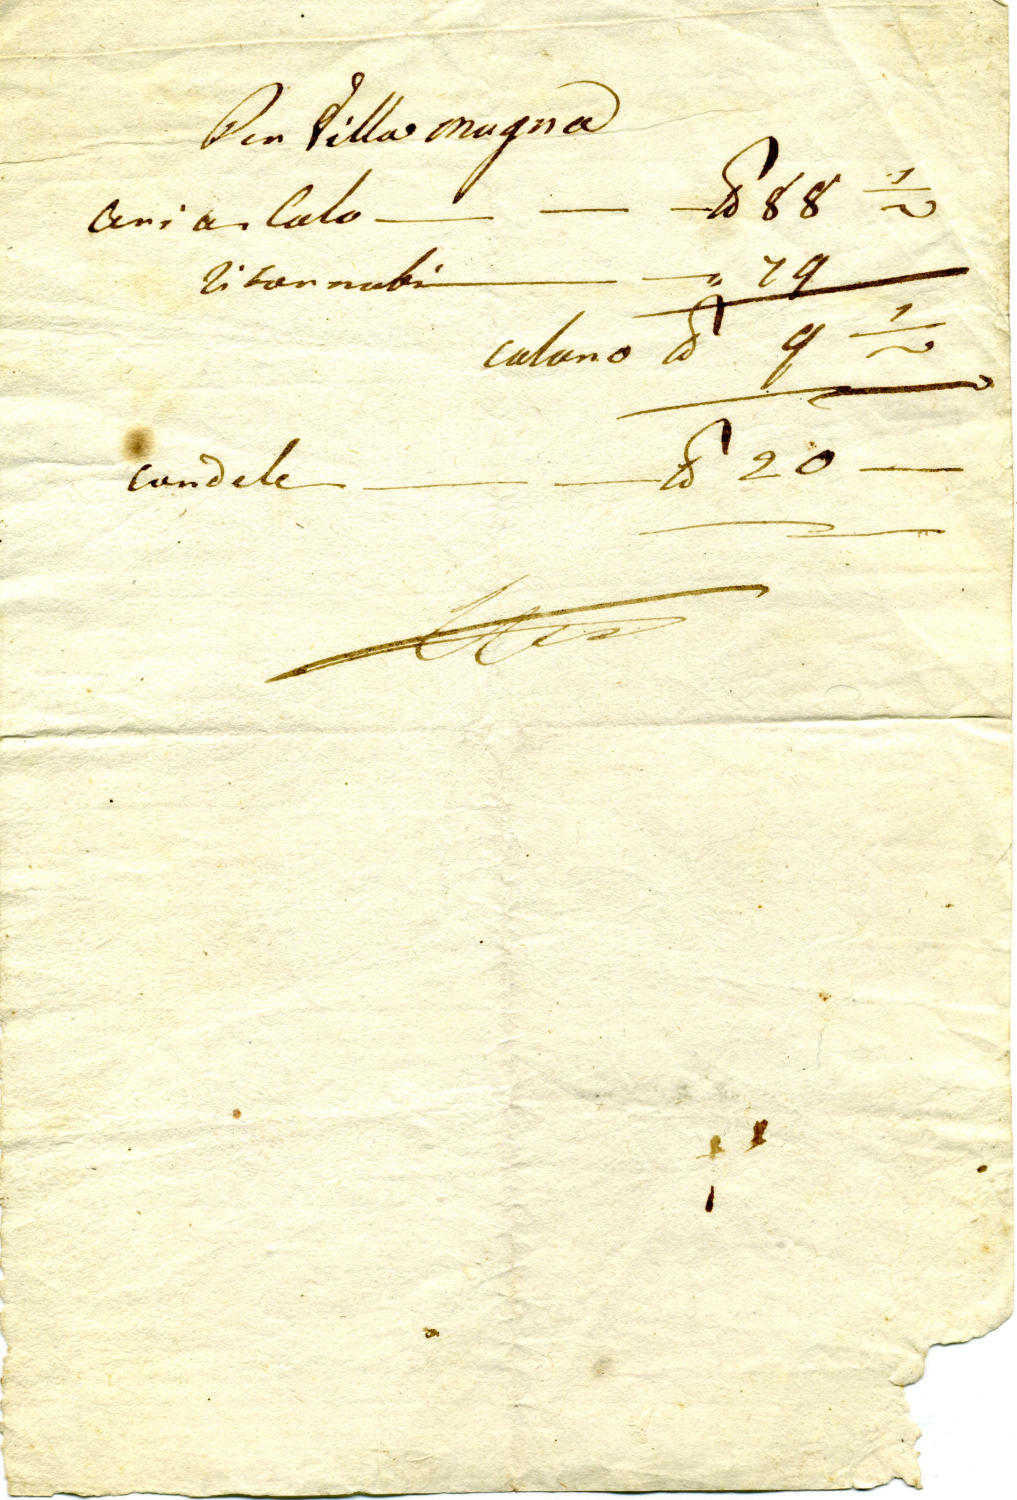 Per Villa magna
Ceri a calo — — — lb 88 1/2
Ritornati — — " 79
calano lb 9 1/2
candele — — — lb 20 —